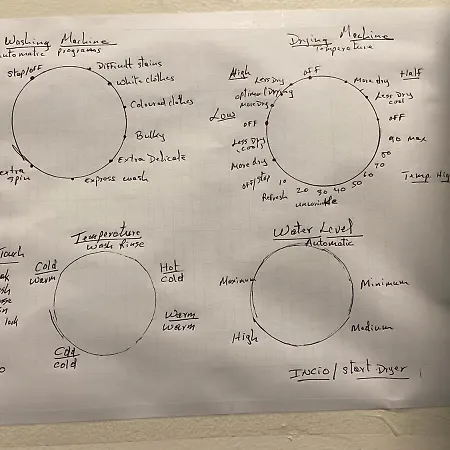 Washing Machine
automatic programs
Stop/OFF
Difficult stains
White clothes
Coloured clothes
Bulky
Extra Delicate
express wash
extra spin
Drying Machine
Temperature
High
Less Dry
optimal Drying
More Dry
Low
OFF
Less Dry
(cool)
More dry
off/stop
OFF
More dry
Half
Less Dry
cool
OFF
90 max
80
70
60
50
40
30
20
10
Refresh
unwrinkle
Temp High
Touch
lock
Temperature
Wash Rinse
Cold
warm
Hot
Cold
Warm
Warm
Cold
cold
Water Level
Automatic
Maximum
Minimum
High
Medium
INCIO / Start Dryer